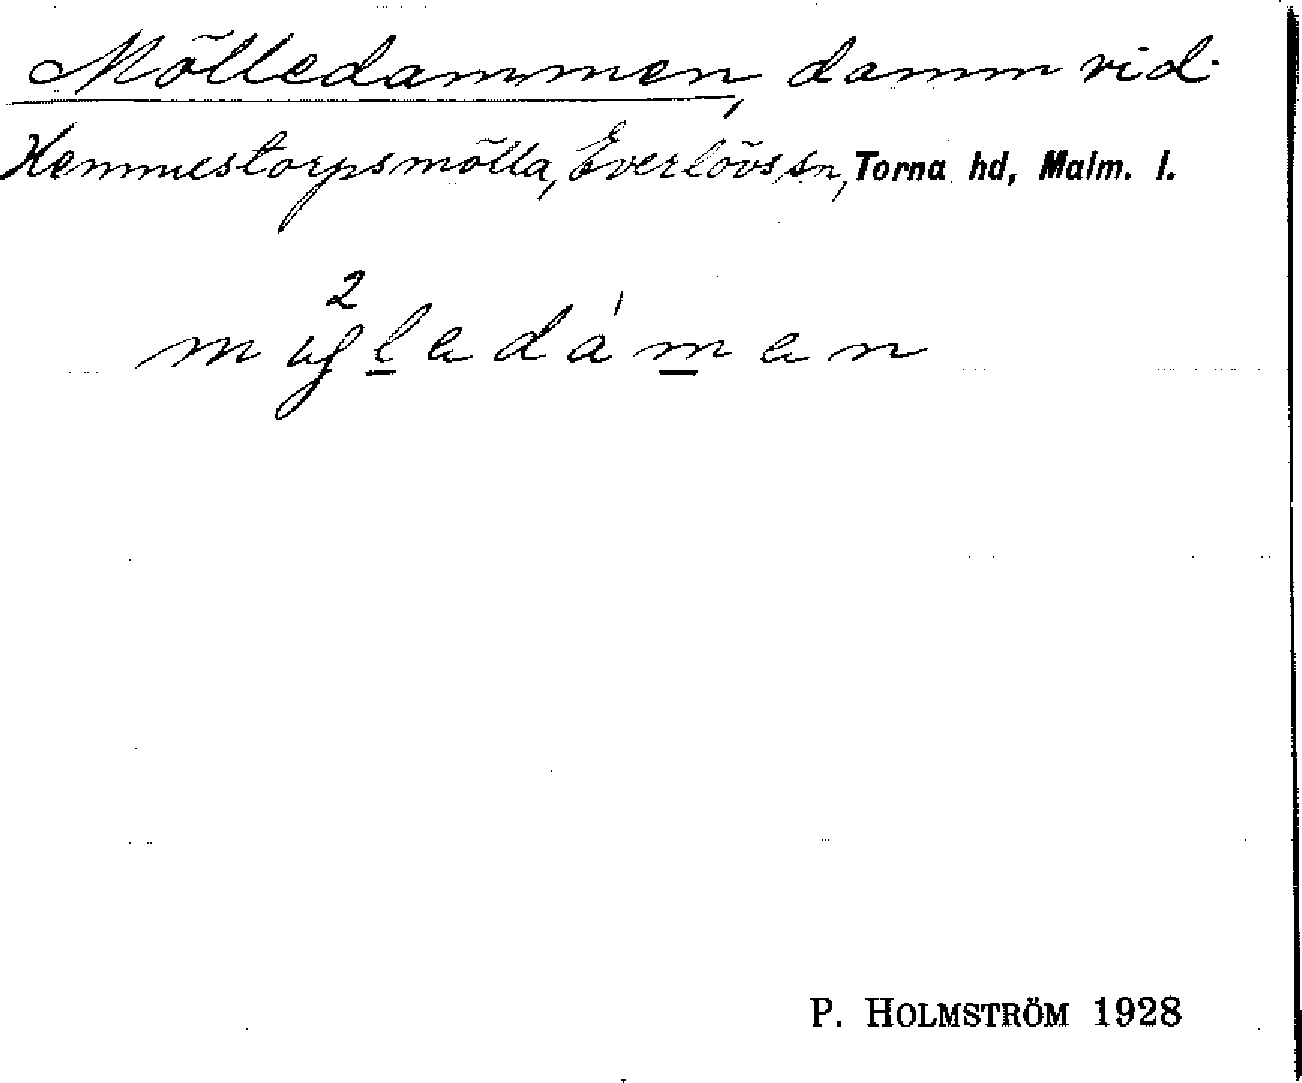 Mölledammen, damm vid
Hemmestorpsmölla, Everlövs sn, Torna hd, Malm. l.
P. HOLMSTRÖM 1928